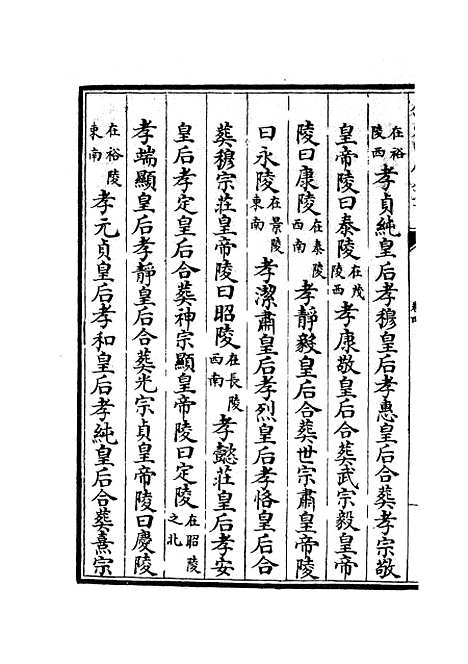 在裕陵西孝貞純皇后孝穆皇后孝惠皇后合葬孝宗敬
皇帝陵曰泰陵在茂陵西孝康敬皇后合葬武宗毅皇帝
陵曰康陵在泰陵西南孝靜毅皇后合葬世宗肅皇帝陵
曰永陵在景陵東南孝潔肅皇后孝烈皇后孝恪皇后合
葬穆宗莊皇帝陵曰昭陵在長陵西南孝懿莊皇后孝安
皇后孝定皇后合葬神宗顯皇帝陵曰定陵在昭陵之北
孝端顯皇后孝靜皇后合葬光宗貞皇帝陵曰慶陵
在裕陵東南孝元貞皇后孝和皇后孝純皇后合葬熹宗